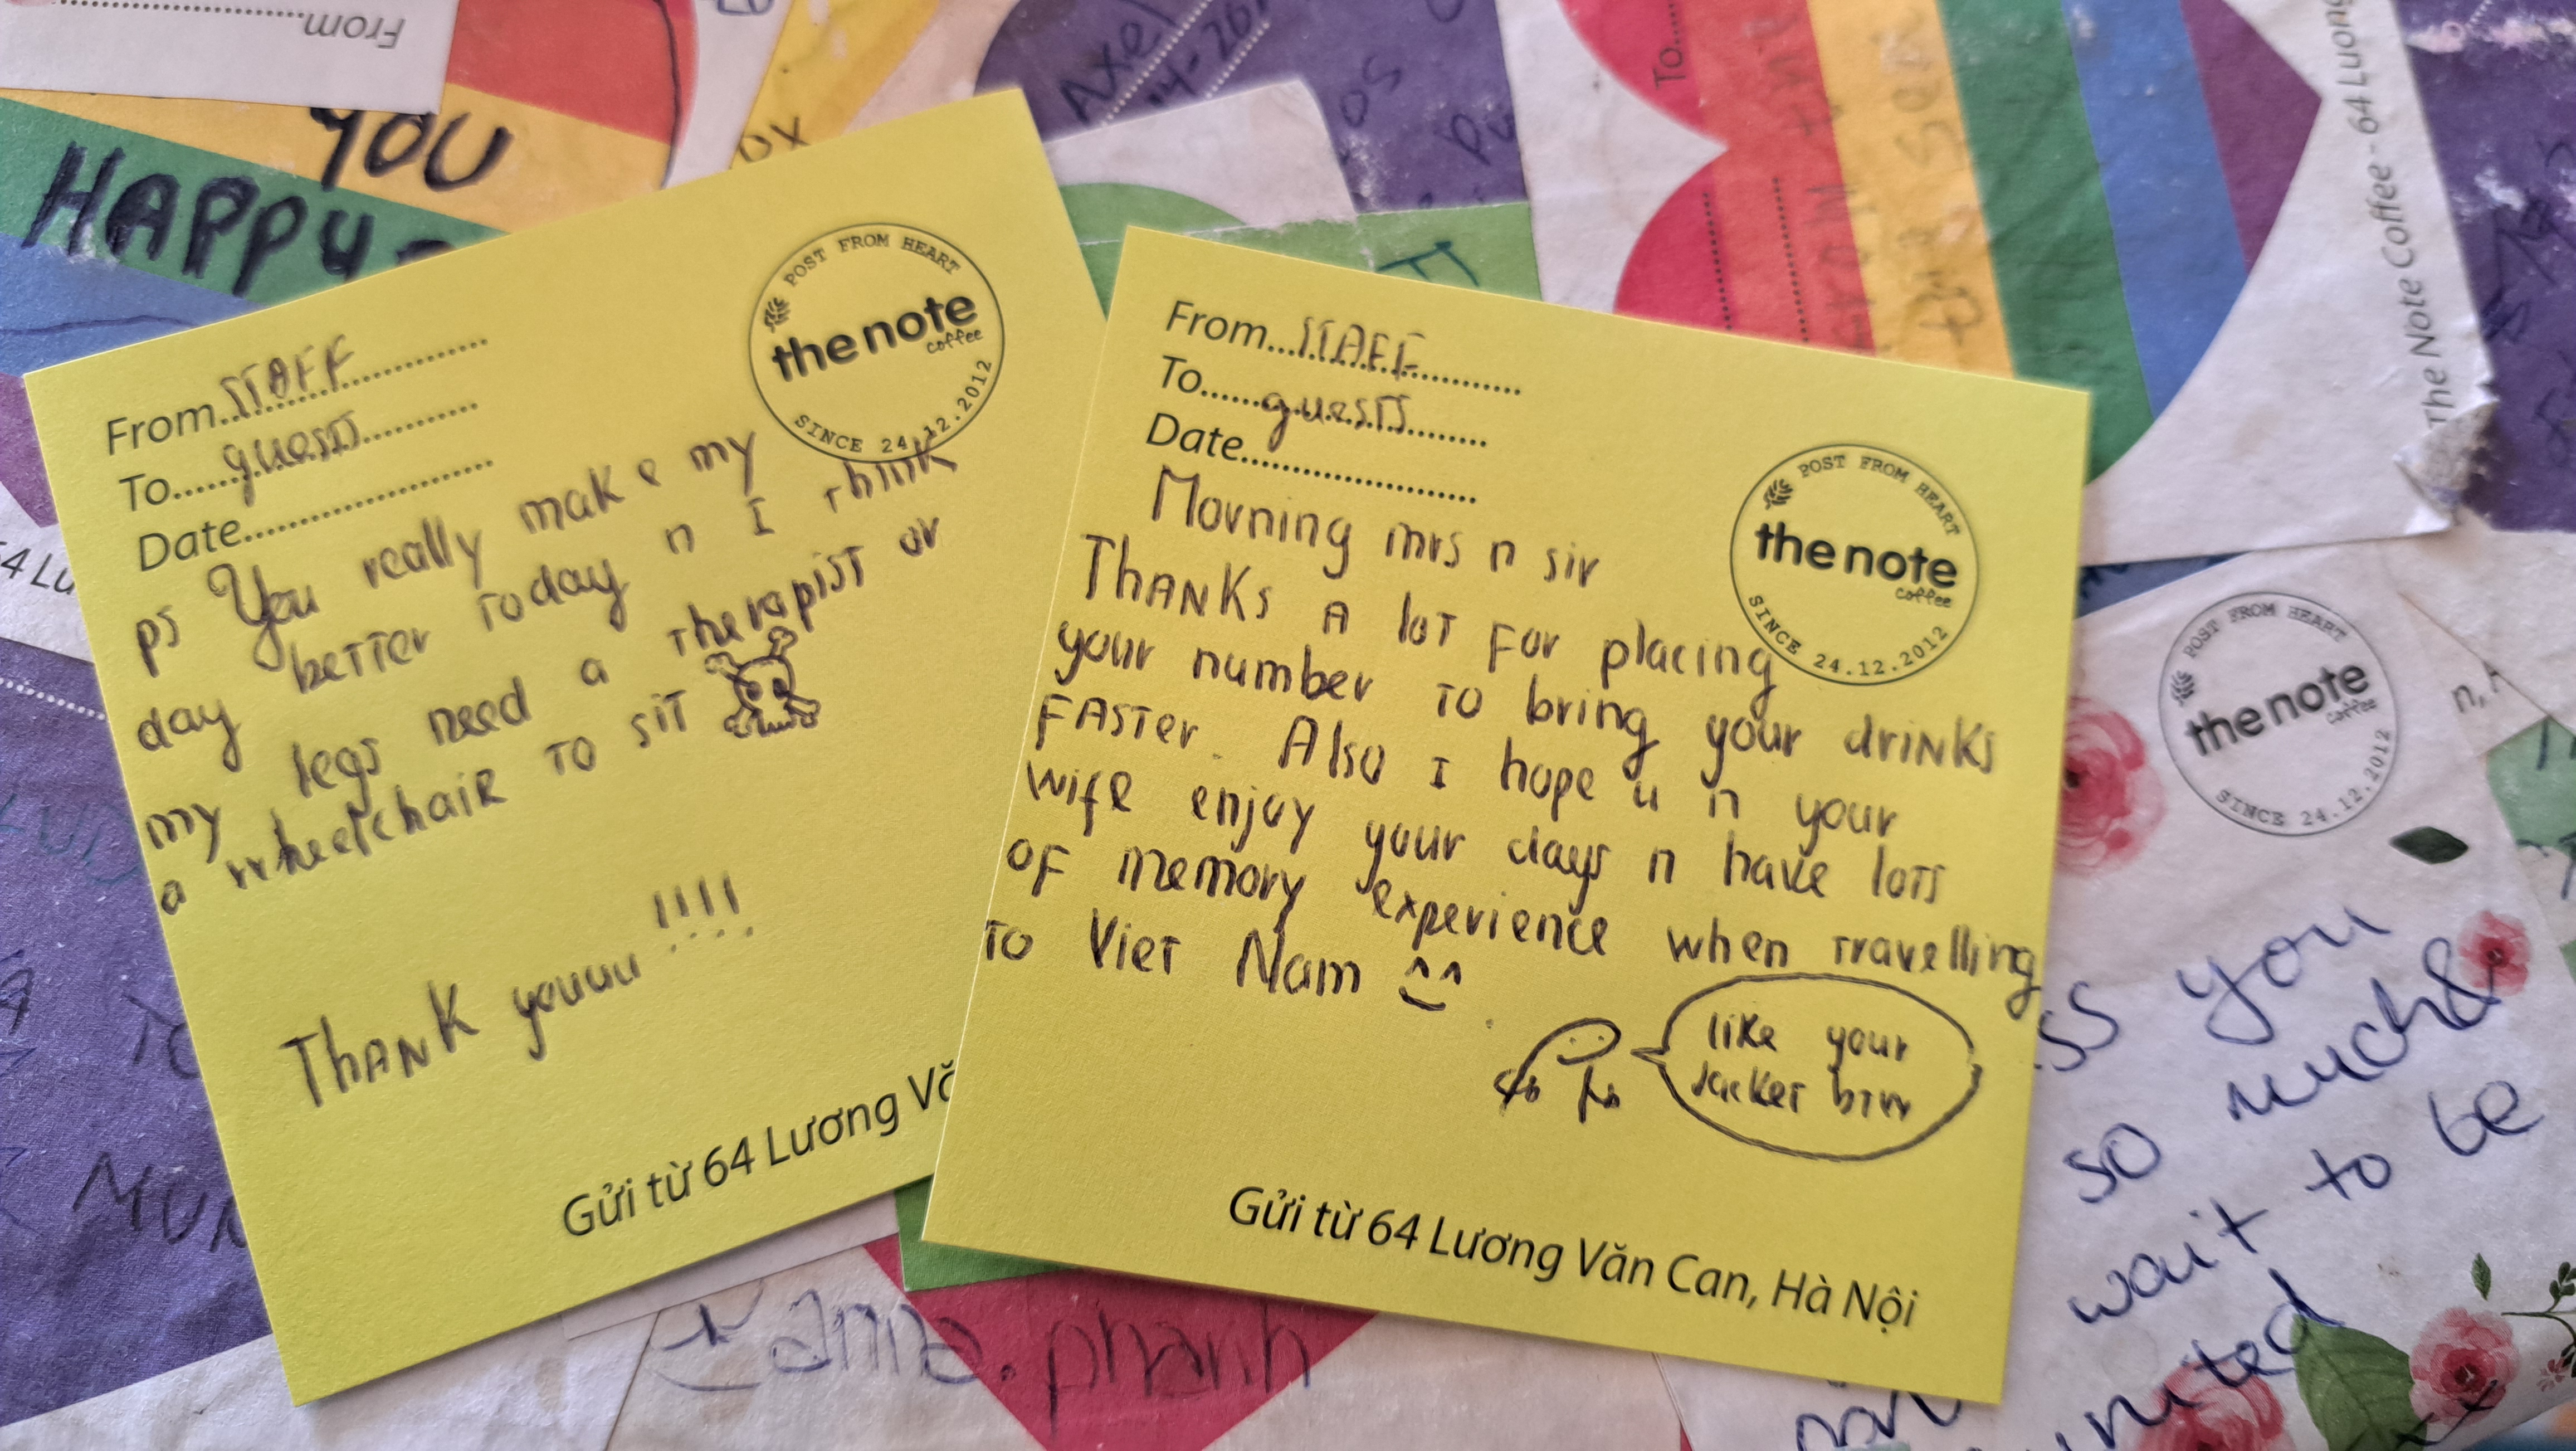 From
YOU
HAPPY
From STAFF
To guests
Date
POST FROM HEART
the note
coffee
SINCE 24.12.2012
ps You really make my
day better today n I think
my legs need a therapist or
a wheelchair to sit
Thank youuu !!!!
Gửi từ 64 Lương Vă
From STAFF
To guests
Date
POST FROM HEART
the note
coffee
SINCE 24.12.2012
Morning mrs n sir
Thanks a lot for placing
your number to bring your drinks
faster. Also I hope u n your
wife enjoy your days n have lots
of memory experience when travelling
to Viet Nam ^^
like your
jacket btw
Gửi từ 64 Lương Văn Can, Hà Nội
Axel
To
The Note Coffee - 64 Lương
POST FROM HEART
the note
coffee
SINCE 24.12.2012
ss you
so much &
wait to be
united
MUN
anna.phanh